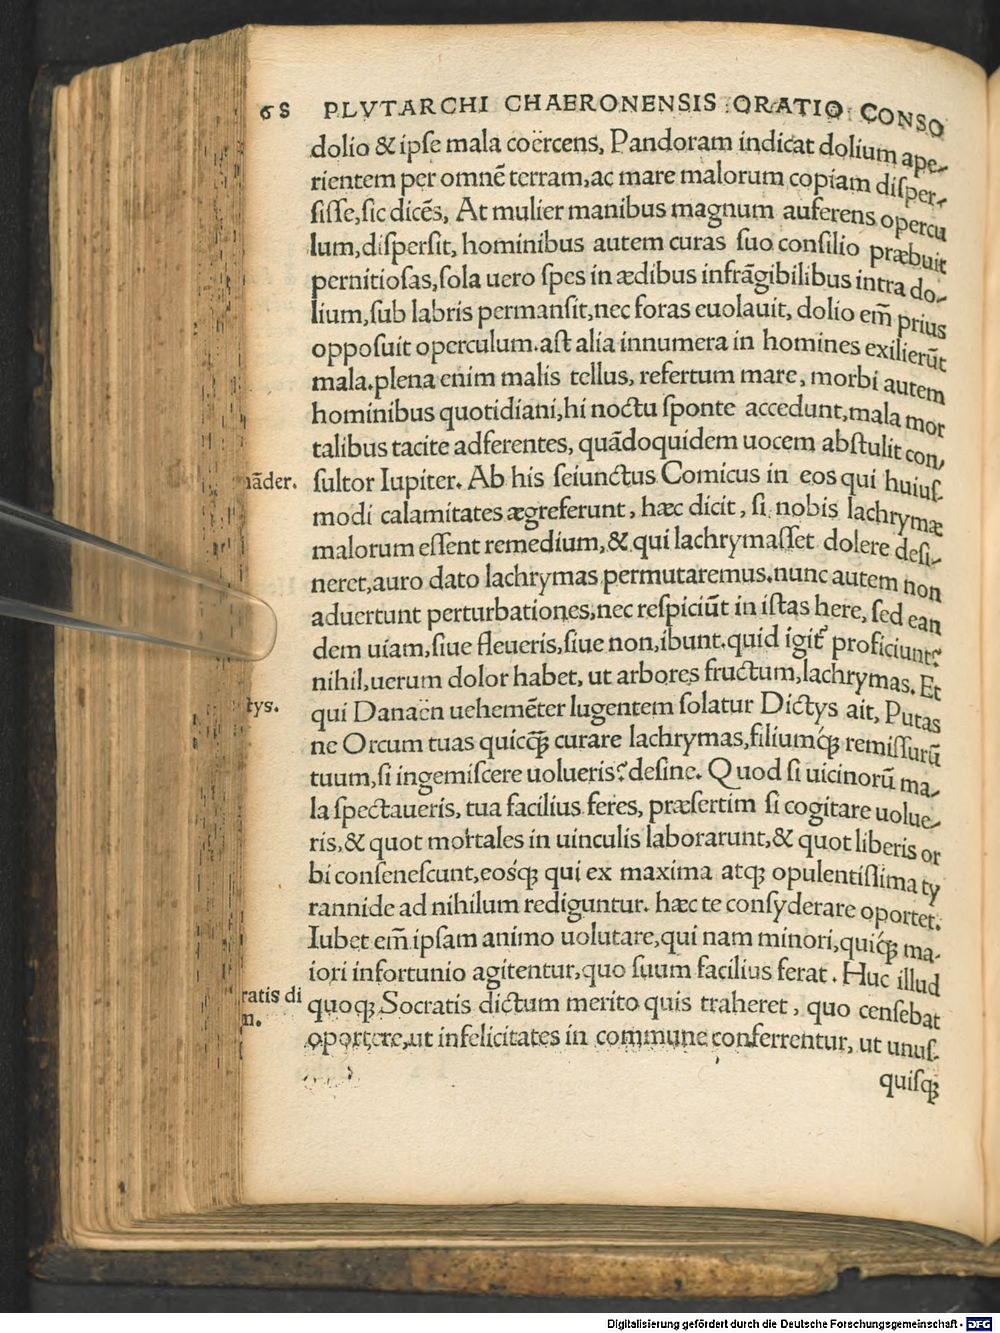 68 PLVTARCHI CHAERONENSIS ORATIO CONSO
dolio & ipse mala coërcens, Pandoram indicat dolium ape-
rientem per omnẽ terram, ac mare malorum copiam disper-
sisse, sic dicẽs, At mulier manibus magnum auferens opercu
lum, dispersit, hominibus autem curas suo consilio præbuit
pernitiosas, sola uero spes in ædibus infrãgibilibus intra do-
lium, sub labris permansit, nec foras euolauit, dolio em̃ prius
opposuit operculum. ast alia innumera in homines exilierũt
mala. plena enim malis tellus, refertum mare, morbi autem
hominibus quotidiani, hi noctu sponte accedunt, mala mor
talibus tacite adferentes, quãdoquidem uocem abstulit con-
nãder. sultor Iupiter. Ab his seiunctus Comicus in eos qui huius-
modi calamitates ægreferunt, hæc dicit, si nobis lachrymæ
malorum essent remedium, & qui lachrymasset dolere desi-
neret, auro dato lachrymas permutaremus. nunc autem non
aduertunt perturbationes, nec respiciũt in istas here, sed ean
dem uiam, siue fleueris, siue non, ibunt. quid igit᷑ proficiunt?
nihil, uerum dolor habet, ut arbores fructum, lachrymas. Et
tys. qui Danaën uehemẽter lugentem solatur Dictys ait, Putas
ne Orcum tuas quicq̃ꝫ curare lachrymas, filiumq́ꝫ remissurũ
tuum, si ingemiscere uolueris? desine. Quod si uicinorũ ma-
la spectaueris, tua facilius feres, præsertim si cogitare uolue-
ris, & quot mortales in uinculis laborarunt, & quot liberis or
bi consenescunt, eosq́ꝫ qui ex maxima atqꝫ opulentissima ty
rannide ad nihilum rediguntur. hæc te consyderare oportet.
Iubet em̃ ipsam animo uolutare, qui nam minori, quiq́ꝫ ma-
iori infortunio agitentur, quo suum facilius ferat. Huc illud
ratis di quoqꝫ Socratis dictum merito quis traheret, quo censebat
m. oportere, ut infelicitates in commune conferrentur, ut unus-
quisqꝫ
Digitalisierung gefördert durch die Deutsche Forschungsgemeinschaft - DFG